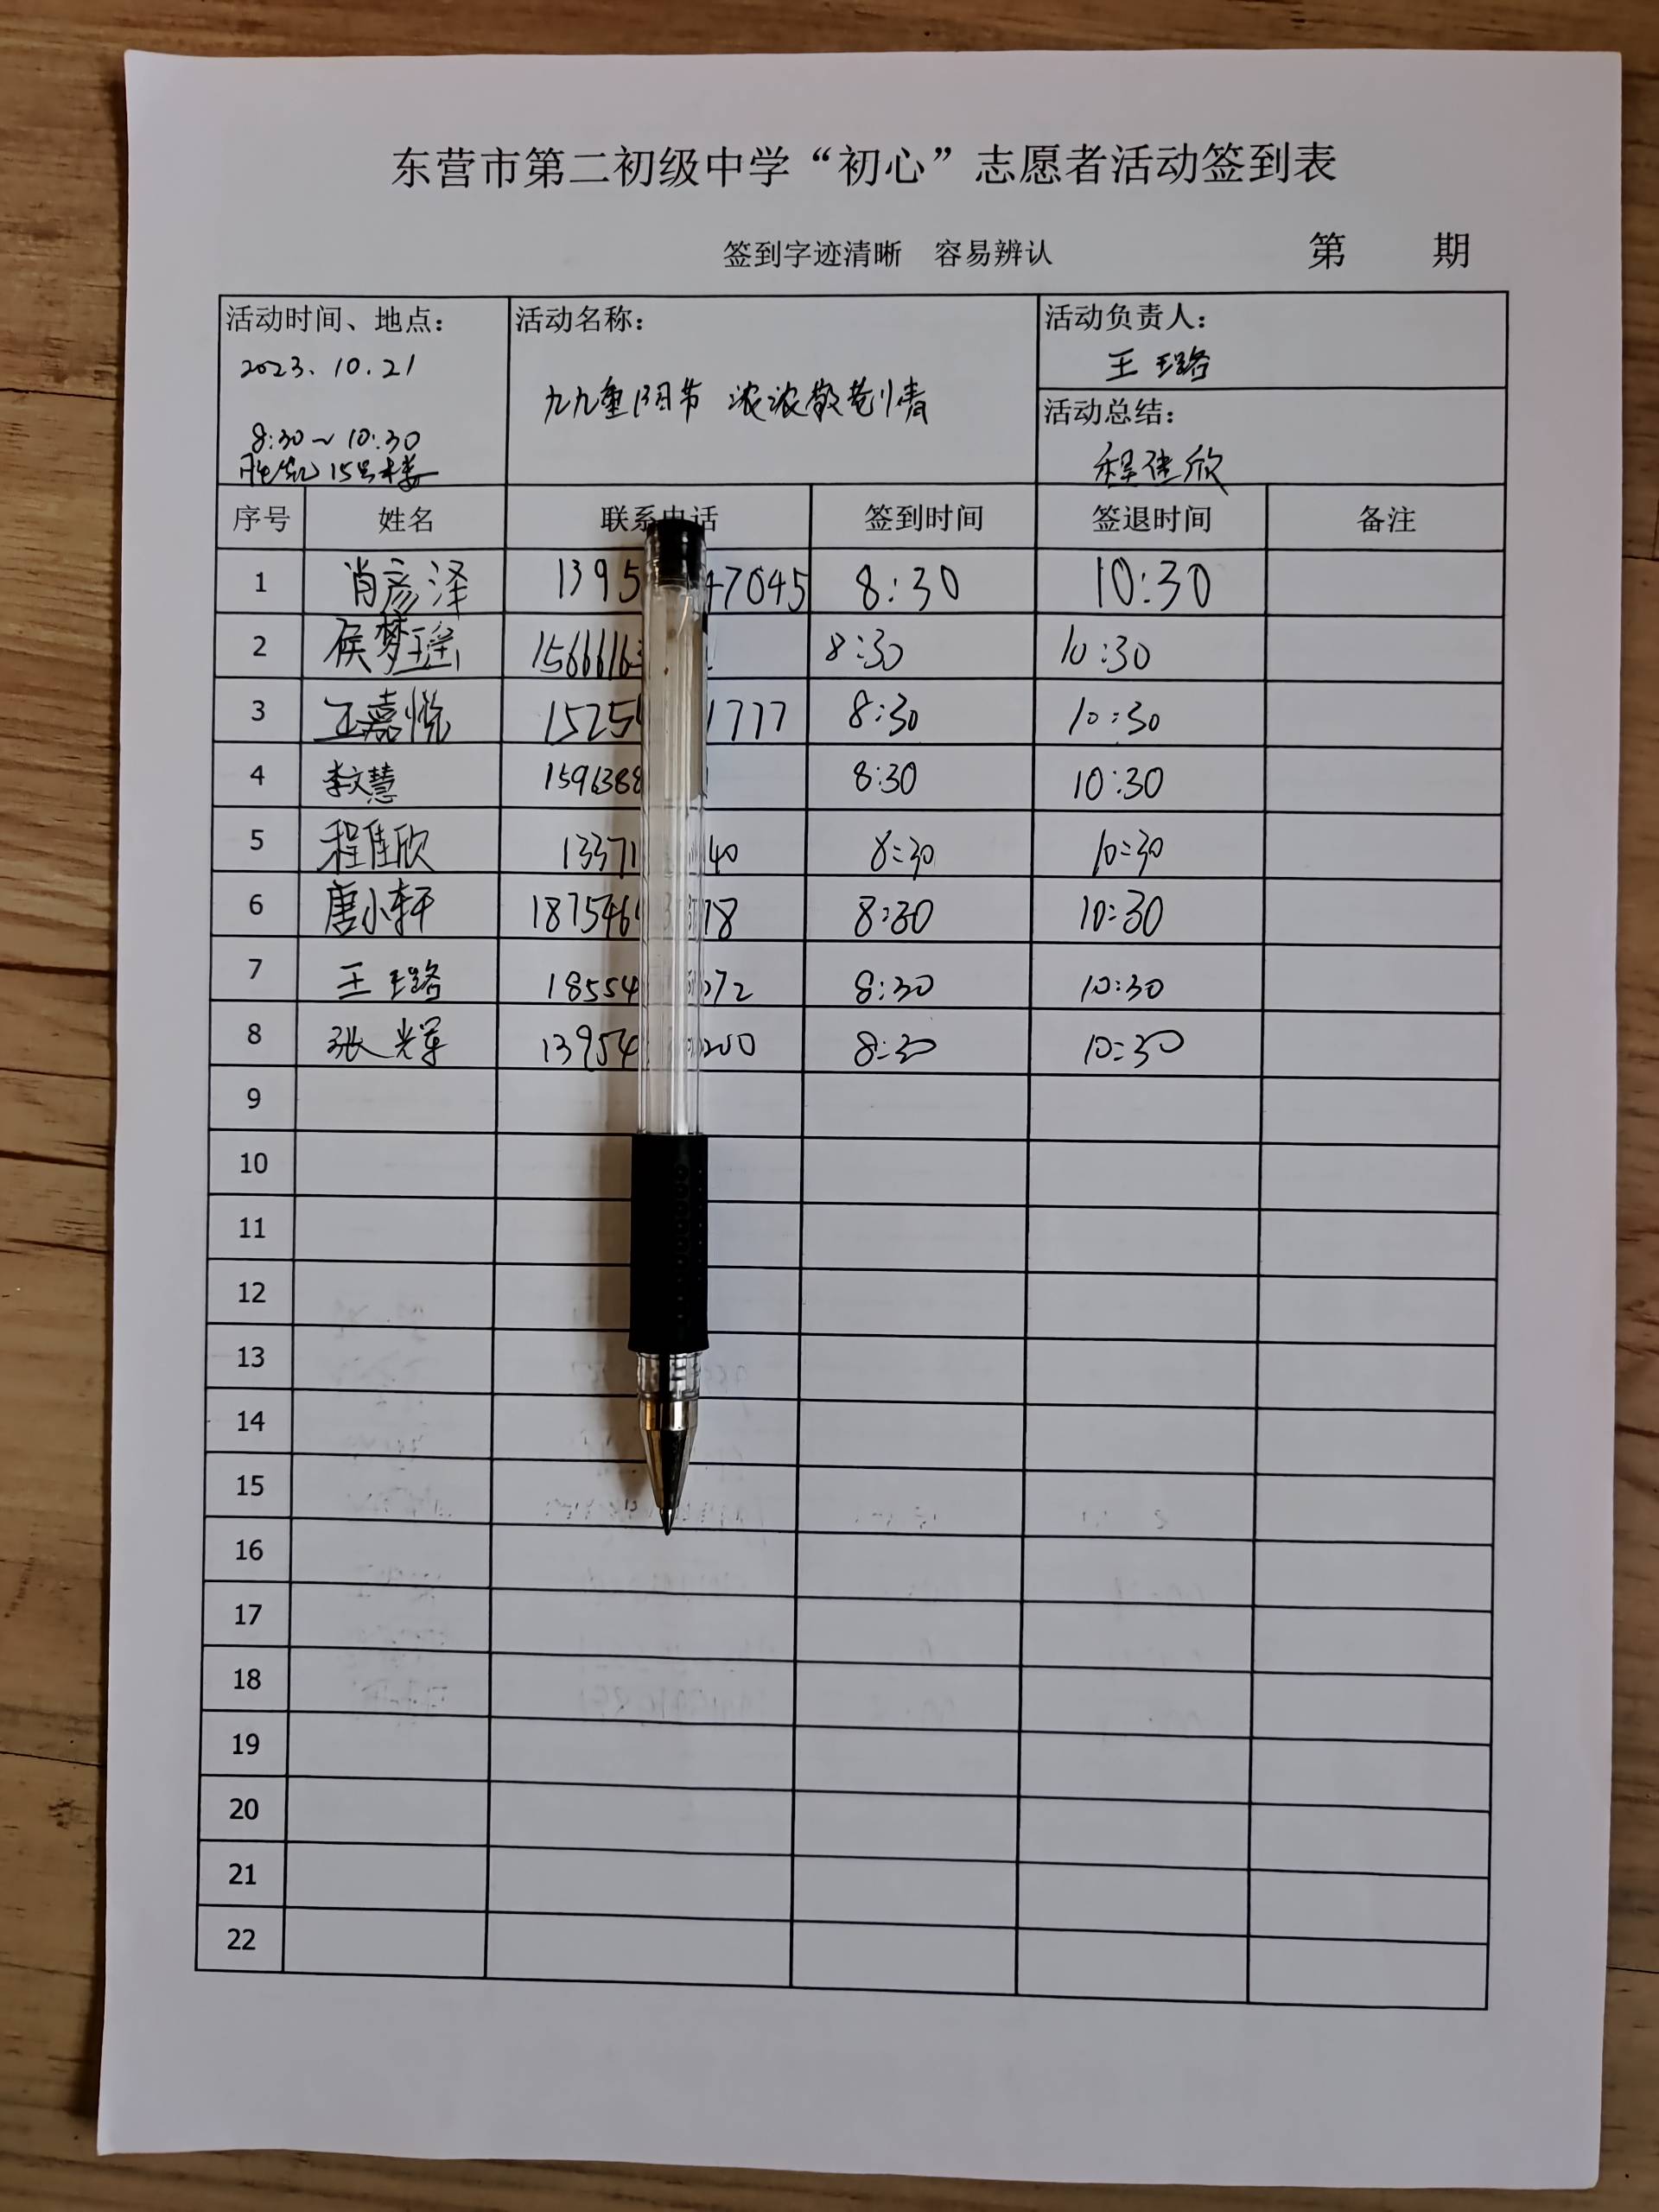 东营市第二初级中学“初心”志愿者活动签到表
签到字迹清晰 容易辨认 第 期
活动时间、地点： 活动名称： 活动负责人：
2023. 10. 21 王璐
九九重阳节 浓浓敬老情
活动总结：
8:30～10:30
15号楼 程佳欣
序号 姓名 联系电话 签到时间 签退时间 备注
1 肖彦泽 1395 47045 8:30 10:30
2 侯梦瑶 1566616 8:30 10:30
3 王嘉悦 1525 1777 8:30 10:30
4 李文慧 1596388 8:30 10:30
5 程佳欣 13371 40 8:30 10:30
6 唐小轩 187546 78 8:30 10:30
7 王璐 18554 072 8:30 10:30
8 张光军 13954 200 8:30 10:30
9
10
11
12
13
14
15
16
17
18
19
20
21
22